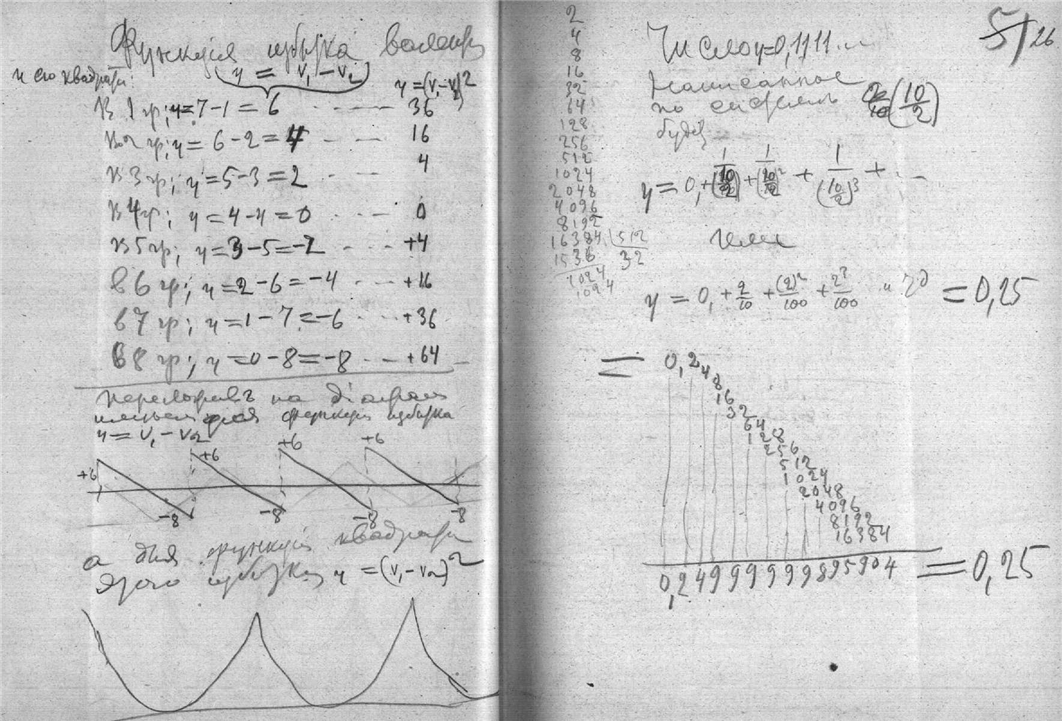 Функция избытка валент.
и его квадрат:
y = V₁ – V₂
y = (V₁–V₂)²
в 1 гр; y = 7 – 1 = 6 36
в 2 гр; y = 6 – 2 = 4 16
в 3 гр; y = 5 – 3 = 2 4
в 4 гр; y = 4 – 4 = 0 0
в 5 гр; y = 3 – 5 = –2 +4
в 6 гр; y = 2 – 6 = –4 +16
в 7 гр; y = 1 – 7 = –6 +36
в 8 гр; y = 0 – 8 = –8 +64
на
для функции избытка
y = V₁ – V₂
+6 +6 +6 +6
–8 –8 –8 –8
а для функции квадрат
избытка y = (V₁–V₂)²
5/26
2
4
8
16
32
64
128
256
512
1024
2048
4096
8192
16384 | 512
1536 32
1024
1024
Число y=0,1111...
Написанное
по системе (10/2)
будет
y = 0, + 1/(10/2) + 1/(10/2)² + 1/(10/2)³ + ...
или
y = 0, + 2/10 + (2)²/100 + 2³/100 = 0,25
= 0,2
4
8
16
32
64
128
256
512
1024
2048
4096
8192
16384
0,249999999895904 = 0,25